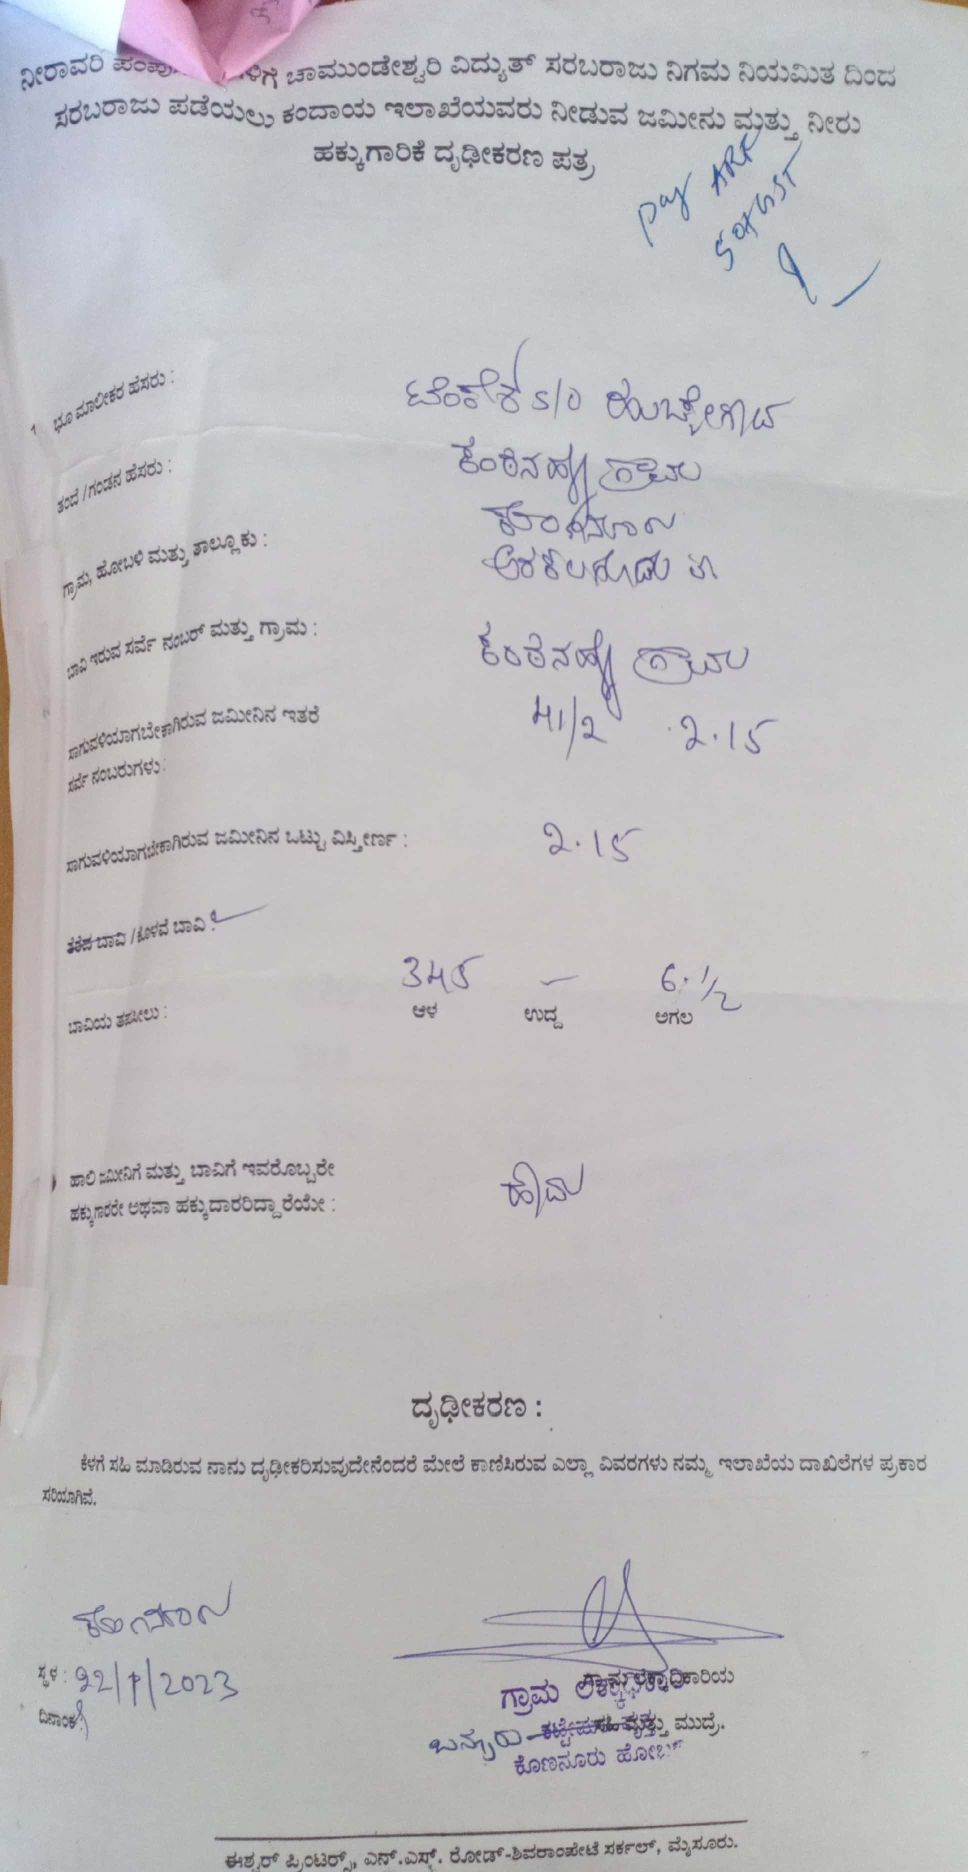 ನೀರಾವರಿ ಪಂಪು ಳಿಗೆ ಚಾಮುಂಡೇಶ್ವರಿ ವಿದ್ಯುತ್ ಸರಬರಾಜು ನಿಗಮ ನಿಯಮಿತ ದಿಂದ
ಸರಬರಾಜು ಪಡೆಯಲು ಕಂದಾಯ ಇಲಾಖೆಯವರು ನೀಡುವ ಜಮೀನು ಮತ್ತು ನೀರು
ಹಕ್ಕುಗಾರಿಕೆ ದೃಢೀಕರಣ ಪತ್ರ
pay ARF
50+GST
1 ಭೂ ಮಾಲೀಕರ ಹೆಸರು :
S/O ಹುಚ್ಚೇಗೌಡ
ತಂದೆ / ಗಂಡನ ಹೆಸರು :
ಗ್ರಾಮ
ಗ್ರಾಮ, ಹೋಬಳಿ ಮತ್ತು ತಾಲ್ಲೂಕು :
ಅರಕಲಗೂಡು ತಾ
ಬಾವಿ ಇರುವ ಸರ್ವೆ ನಂಬರ್ ಮತ್ತು ಗ್ರಾಮ :
ಗ್ರಾಮ
ಸಾಗುವಳಿಯಾಗಬೇಕಾಗಿರುವ ಜಮೀನಿನ ಇತರೆ
ಸರ್ವೆ ನಂಬರುಗಳು:
41/2 2.15
ಸಾಗುವಳಿಯಾಗಬೇಕಾಗಿರುವ ಜಮೀನಿನ ಒಟ್ಟು ವಿಸ್ತೀರ್ಣ :
2.15
ತೆರೆದ ಬಾವಿ / ಕೊಳವೆ ಬಾವಿ :
345 — 6.1/2
ಬಾವಿಯ ತಪಸೀಲು : ಆಳ ಉದ್ದ ಅಗಲ
ಹಾಲಿ ಜಮೀನಿಗೆ ಮತ್ತು ಬಾವಿಗೆ ಇವರೊಬ್ಬರೇ
ಹಕ್ಕುಗಾರರೇ ಅಥವಾ ಹಕ್ಕುದಾರರಿದ್ದಾರೆಯೇ :
ಹೌದು
ದೃಢೀಕರಣ :
ಕೆಳಗೆ ಸಹಿ ಮಾಡಿರುವ ನಾನು ದೃಢೀಕರಿಸುವುದೇನೆಂದರೆ ಮೇಲೆ ಕಾಣಿಸಿರುವ ಎಲ್ಲಾ ವಿವರಗಳು ನಮ್ಮ ಇಲಾಖೆಯ ದಾಖಲೆಗಳ ಪ್ರಕಾರ
ಸರಿಯಾಗಿವೆ.
ಸ್ಥಳ :
22/7/2023
ದಿನಾಂಕ
ಗ್ರಾಮ
ಸಹಿ ಮತ್ತು ಮುದ್ರೆ.
ಕೊಣನೂರು ಹೋಬಳಿ
ಈಶ್ವರ್ ಪ್ರಿಂಟರ್ಸ್, ಎನ್.ಎಸ್. ರೋಡ್-ಶಿವರಾಂಪೇಟೆ ಸರ್ಕಲ್, ಮೈಸೂರು.